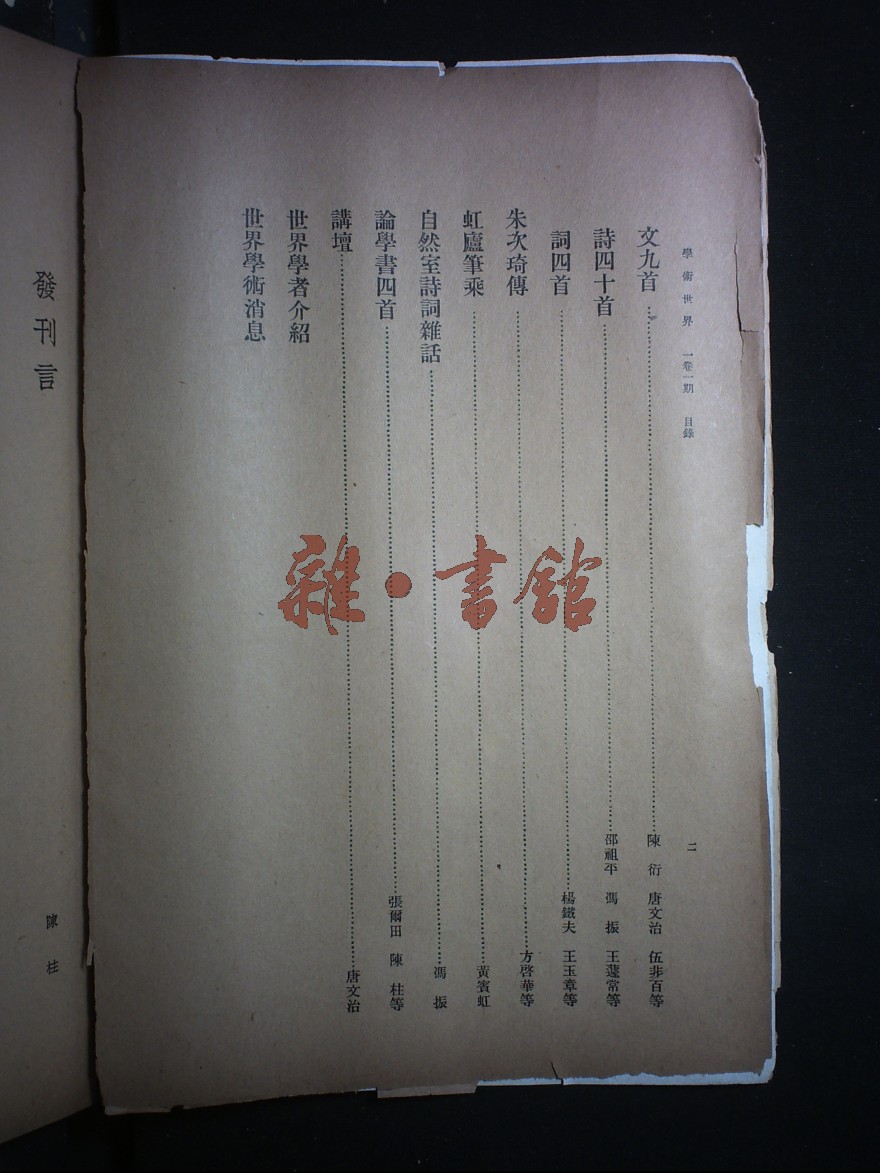 學術世界 一卷一期 目錄 二
文九首……陳衍 唐文治 伍非百等
詩四十首……邵祖平 馮振 王蘧常等
詞四首……楊鐵夫 王玉章等
朱次琦傳……方啓華等
虹廬筆乘……黃賓虹
自然室詩詞雜話……馮振
論學書四首……張爾田 陳柱等
講壇……唐文治
世界學者介紹
世界學術消息
發刊言
陳柱
雜·書館